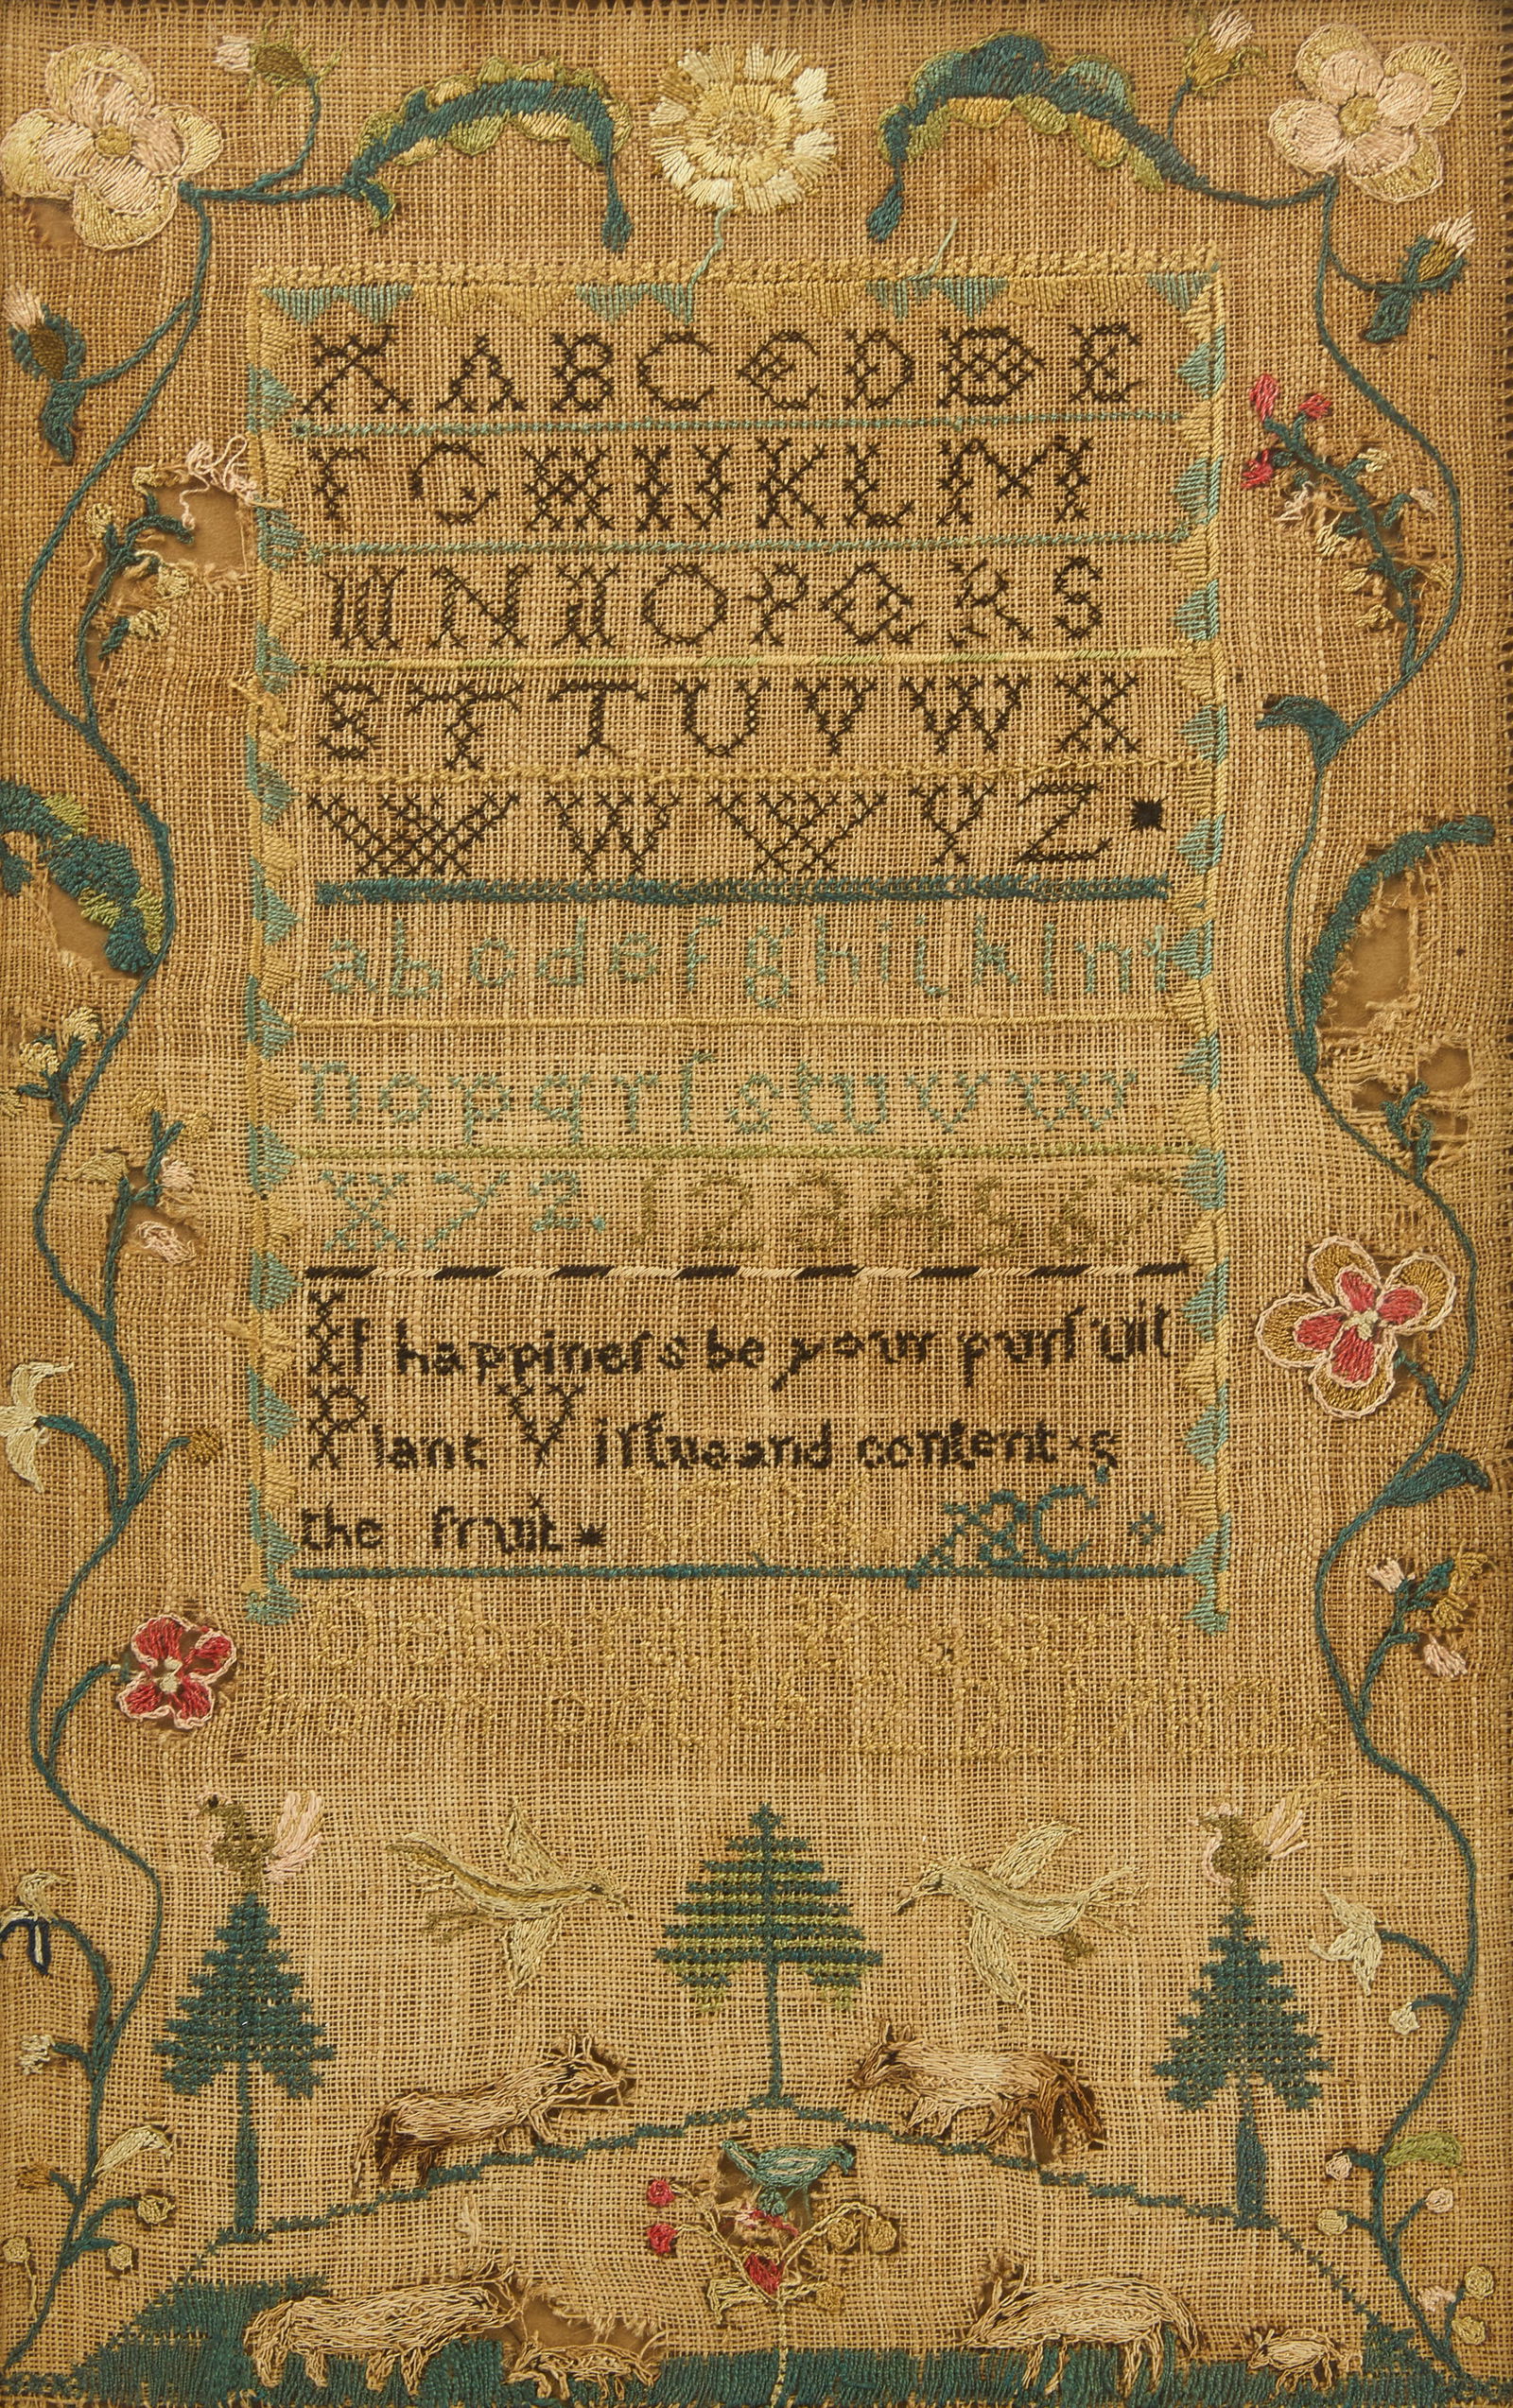 A A B C C D D E
F G H I J K L M
M N N O P Q R S
S T T U V W X
W W W Y Z
a b c d e f g h i j k l m
n o p q r ſ s t u v w
x y z. 1 2 3 4 5 6 7
If happineſs be your purſuit
Plant Virtue and content's
the fruit
Deborah
born oct th